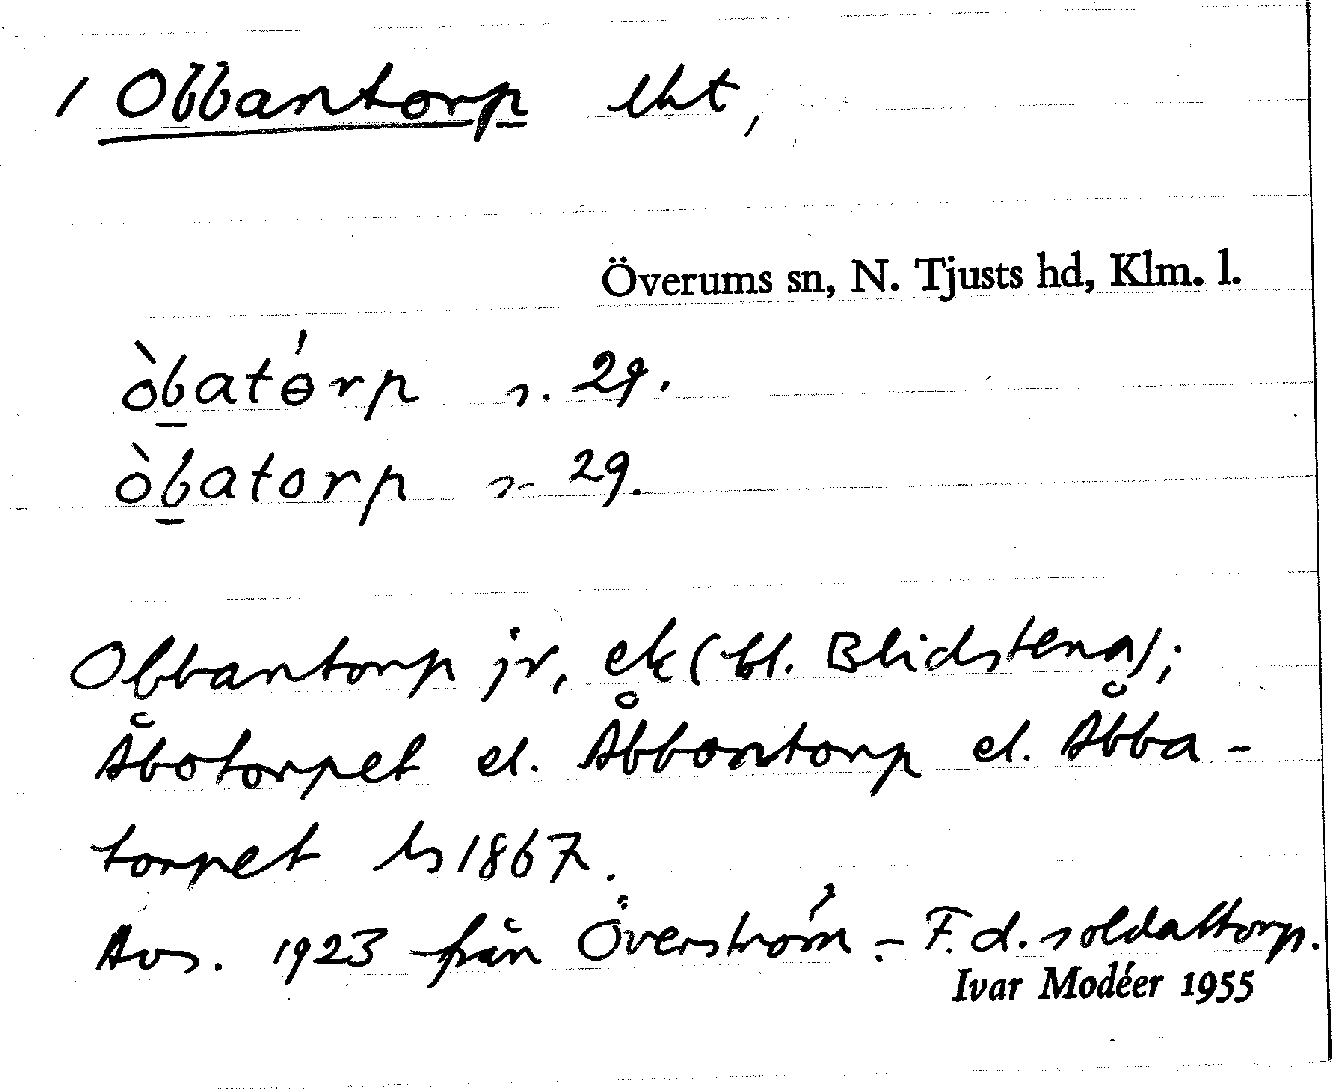 1 Obbantorp lht,
Överums sn, N. Tjusts hd, Klm. l.
òbatɵ́rp s. 29.
òbatorp s. 29.
Obbantorp jr, ek (bl. Blidstena);
Åbotorpet el. Åbbontorp el. Åbba-
torpet ls 1867.
Avs. 1923 från Överström. – F. d. soldattorp.
Ivar Modéer 1955